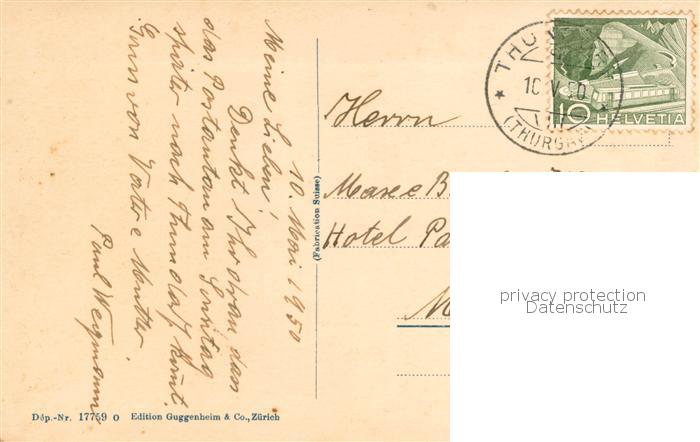 10. Mai 1950
Meine Lieben!
Denkt Ihr dran, dass
das Postauto am Sonntag
später nach Thundorf kommt.
Gruss von Vater & Mutter.
Paul Wegmann
(Fabrication Suisse)
Herrn
Hotel
THU
10 V 50
(THURGAU)
10 HELVETIA
privacy protection
Datenschutz
Dép.-Nr. 17759 o Edition Guggenheim & Co., Zürich